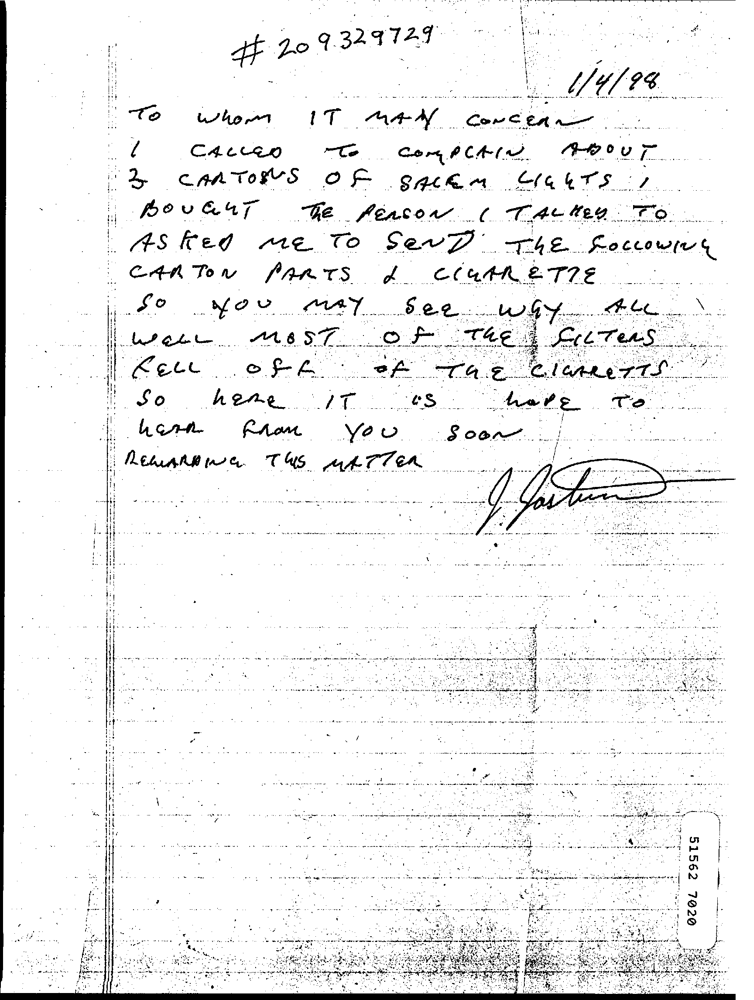 # 209329729
1/4/98
TO WHOM IT MAY CONCERN
I CALLED TO COMPLAIN ABOUT
CARTONS OF SALEM LIGHTS I
BOUGHT THE PERSON I TALKED TO
ASKED ME TO SEND THE FOLLOWING
CARTON PARTS & CIGARETTE
SO YOU MAY SEE WHY ALL
WELL MOST OF THE FILTERS
FELL OFF OF THE CIGARETTS
SO HERE IT IS HOPE TO
HEAR FROM YOU SOON
REGARDING THIS MATTER
J.
51562 7020